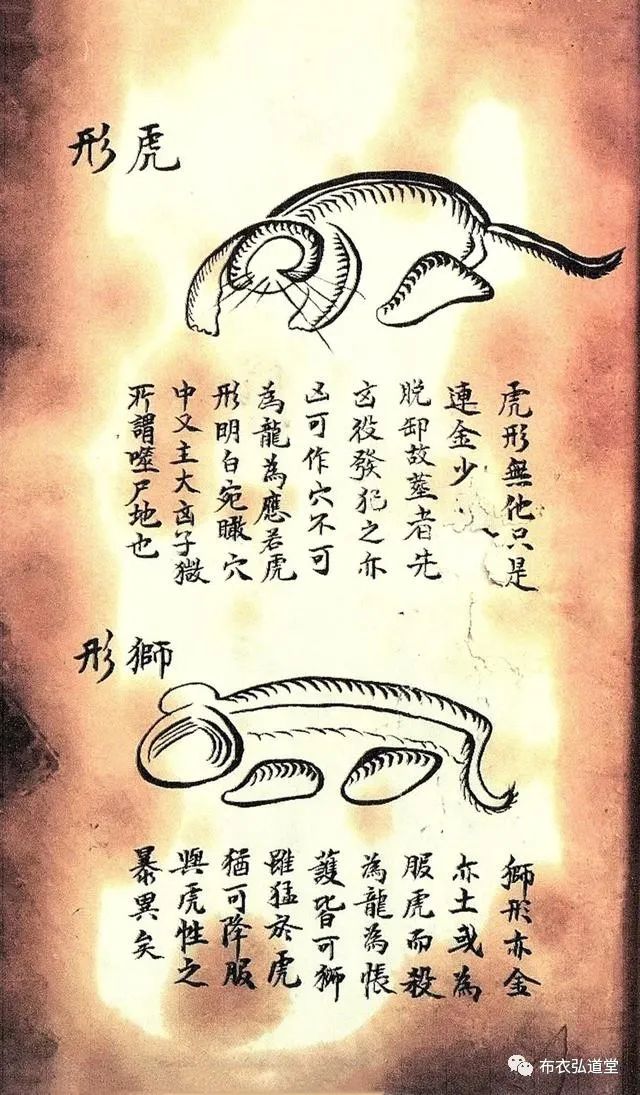 虎形
虎形無他只是
連金少
脱卸故塟者先
凶殺發犯之亦
凶可作穴不可
為龍為應若虎
形明白宛瞰穴
中又主大凶子
所謂噬尸地也
獅形
獅形亦金
亦土或為
服虎而殺
為龍為帳
護皆可獅
雖猛於虎
猶可降服
與虎性之
暴異矣
布衣弘道堂